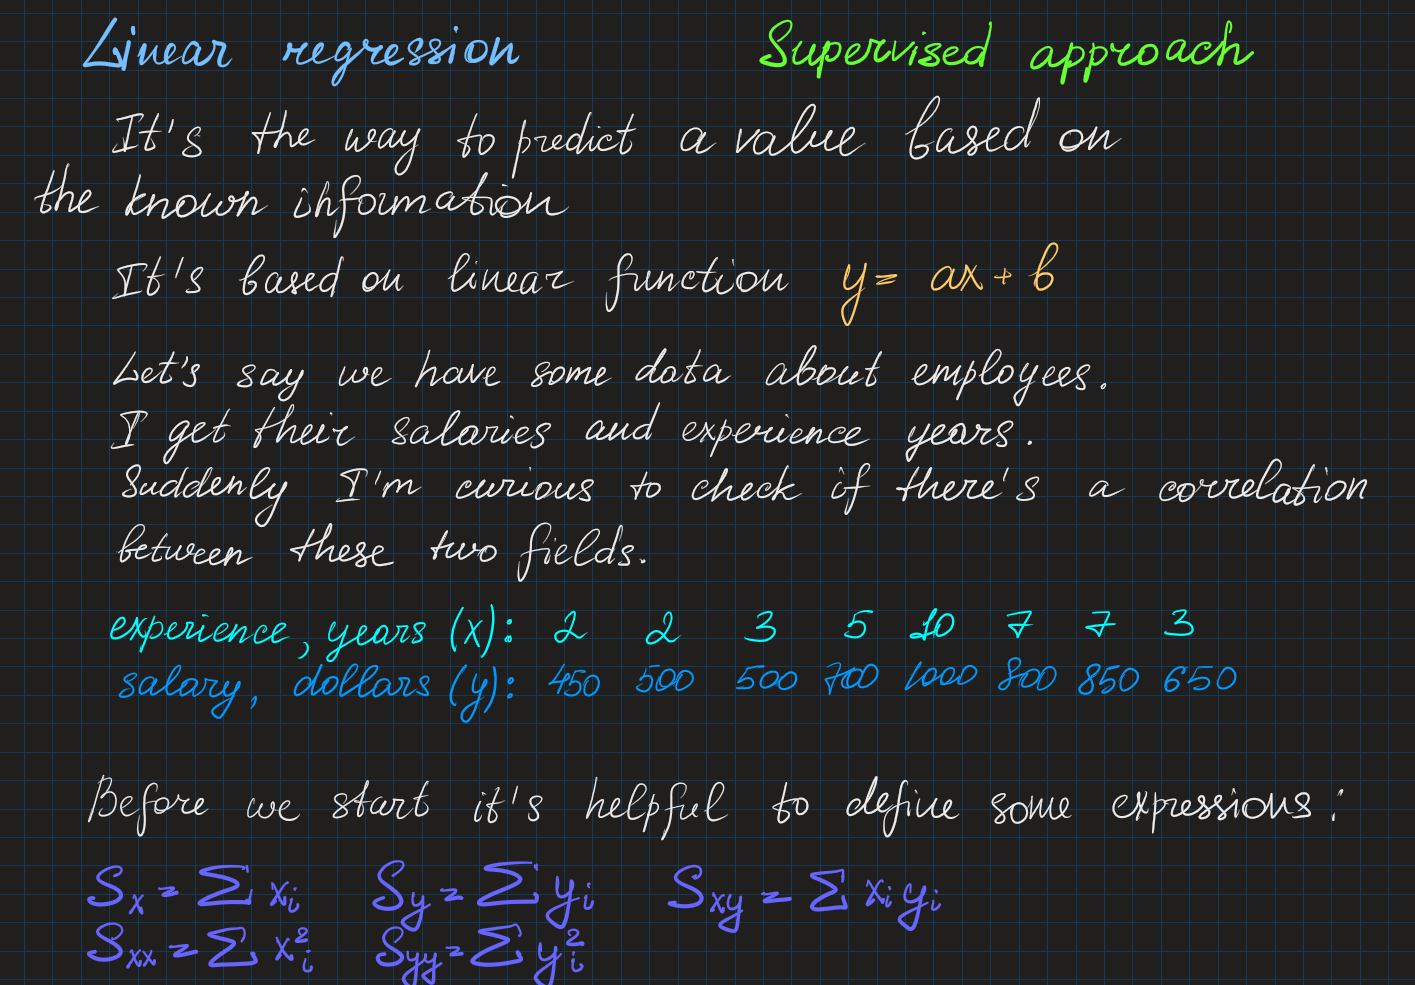 Linear regression Supervised approach
It's the way to predict a value based on
the known information
It's based on linear function y = ax + b
Let's say we have some data about employees.
I get their salaries and experience years.
Suddenly I'm curious to check if there's a correlation
between these two fields.
experience, years (x): 2 2 3 5 10 7 7 3
salary, dollars (y): 450 500 500 700 1000 800 850 650
Before we start it's helpful to define some expressions:
Sₓ = ∑ xᵢ S_y = ∑ yᵢ S_xy = ∑ xᵢ yᵢ
Sₓₓ = ∑ xᵢ² S_yy = ∑ yᵢ²